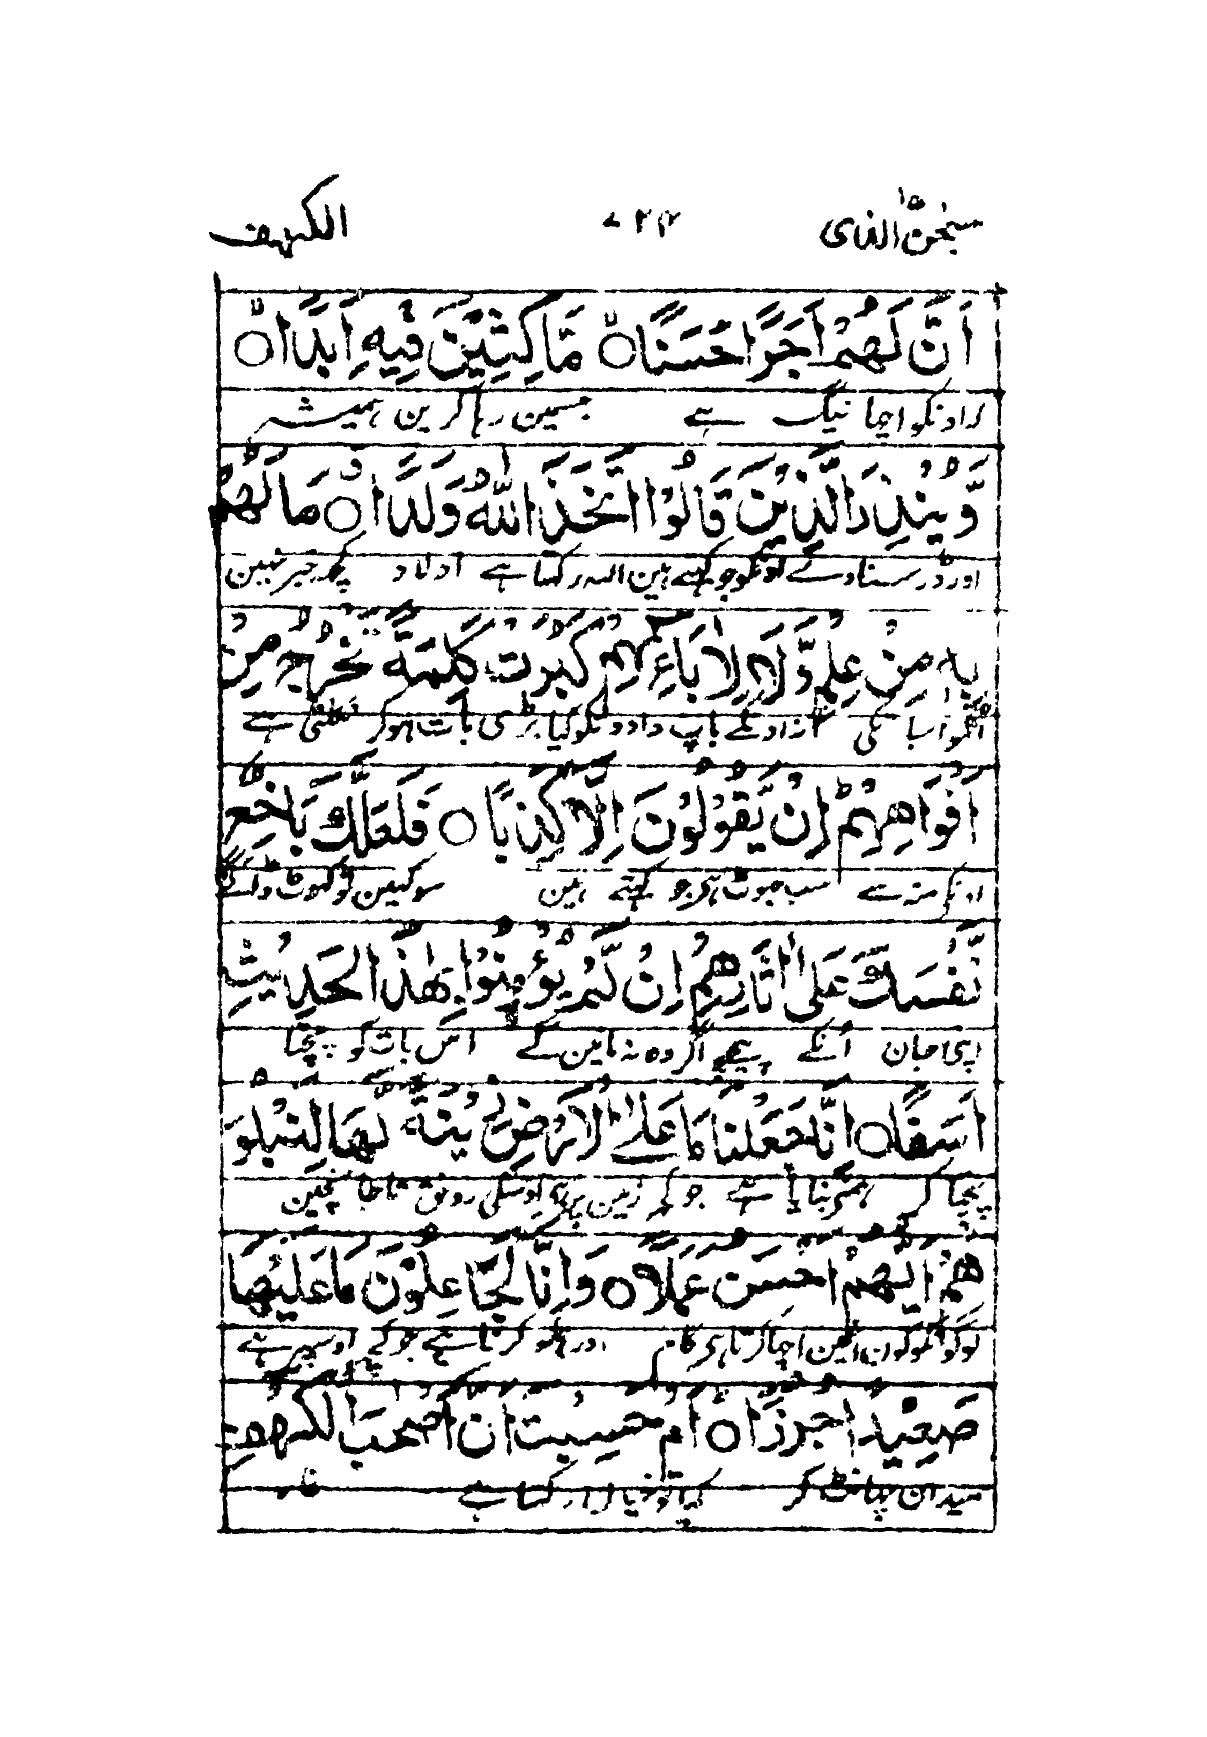 سبحن الذی ۱۵ ۷۲۴ الکہف
اَنَّ لَهُمْ اَجْرًا حَسَنًا ۝ مَّاكِثِيْنَ فِيْهِ اَبَدًا ۝
کہ اونکو اچھا نیگ ہے جسمین رہا کرین ہمیشہ
وَّيُنْذِرَ الَّذِيْنَ قَالُوا اتَّخَذَ اللّٰهُ وَلَدًا ۝ مَا لَهُمْ
اور ڈر سناوے اونکو جو کہتے ہین اللہ رکھتا ہے اولاد کچھ خبر نہین
بِهٖ مِنْ عِلْمٍ وَّلَا لِاٰبَآئِهِمْ كَبُرَتْ كَلِمَةً تَخْرُجُ مِنْ
اونکو اس بات کی نہ اونکے باپ دادونکو کیا بڑی بات ہوکر نکلتی ہے
اَفْوَاهِهِمْ اِنْ يَّقُوْلُوْنَ اِلَّا كَذِبًا ۝ فَلَعَلَّكَ بَاخِعٌ
اونکے منہ سے سب جھوٹ ہی جو کہتے ہین سو کہین تو گھونٹ ڈالے گا
نَّفْسَكَ عَلٰۤى اٰثَارِهِمْ اِنْ لَّمْ يُؤْمِنُوْا بِهٰذَا الْحَدِيْثِ
اپنی جان اُنکے پیچھے اگر وہ نہ مانین گے اس بات کو پچتا
اَسَفًا ۝ اِنَّا جَعَلْنَا مَا عَلَى الْاَرْضِ زِيْنَةً لَّهَا لِنَبْلُوَ
پچتا کر ہمنے بنایا ہے جو کچھ زمین پر ہی اوسکی رونق تا جانچین
هُمْ اَيُّهُمْ اَحْسَنُ عَمَلًا ۝ وَاِنَّا لَجَاعِلُوْنَ مَا عَلَيْهَا
لوگونکو کون انمین اچھا کرتا ہی کام اور ہمکو کرنا ہے جو کچھ اوسپر ہے
صَعِيْدًا جُرُزًا ۝ اَمْ حَسِبْتَ اَنَّ اَصْحٰبَ الْكَهْفِ
میدان چھانٹ کر کیا تو خیال رکھتا ہے غار